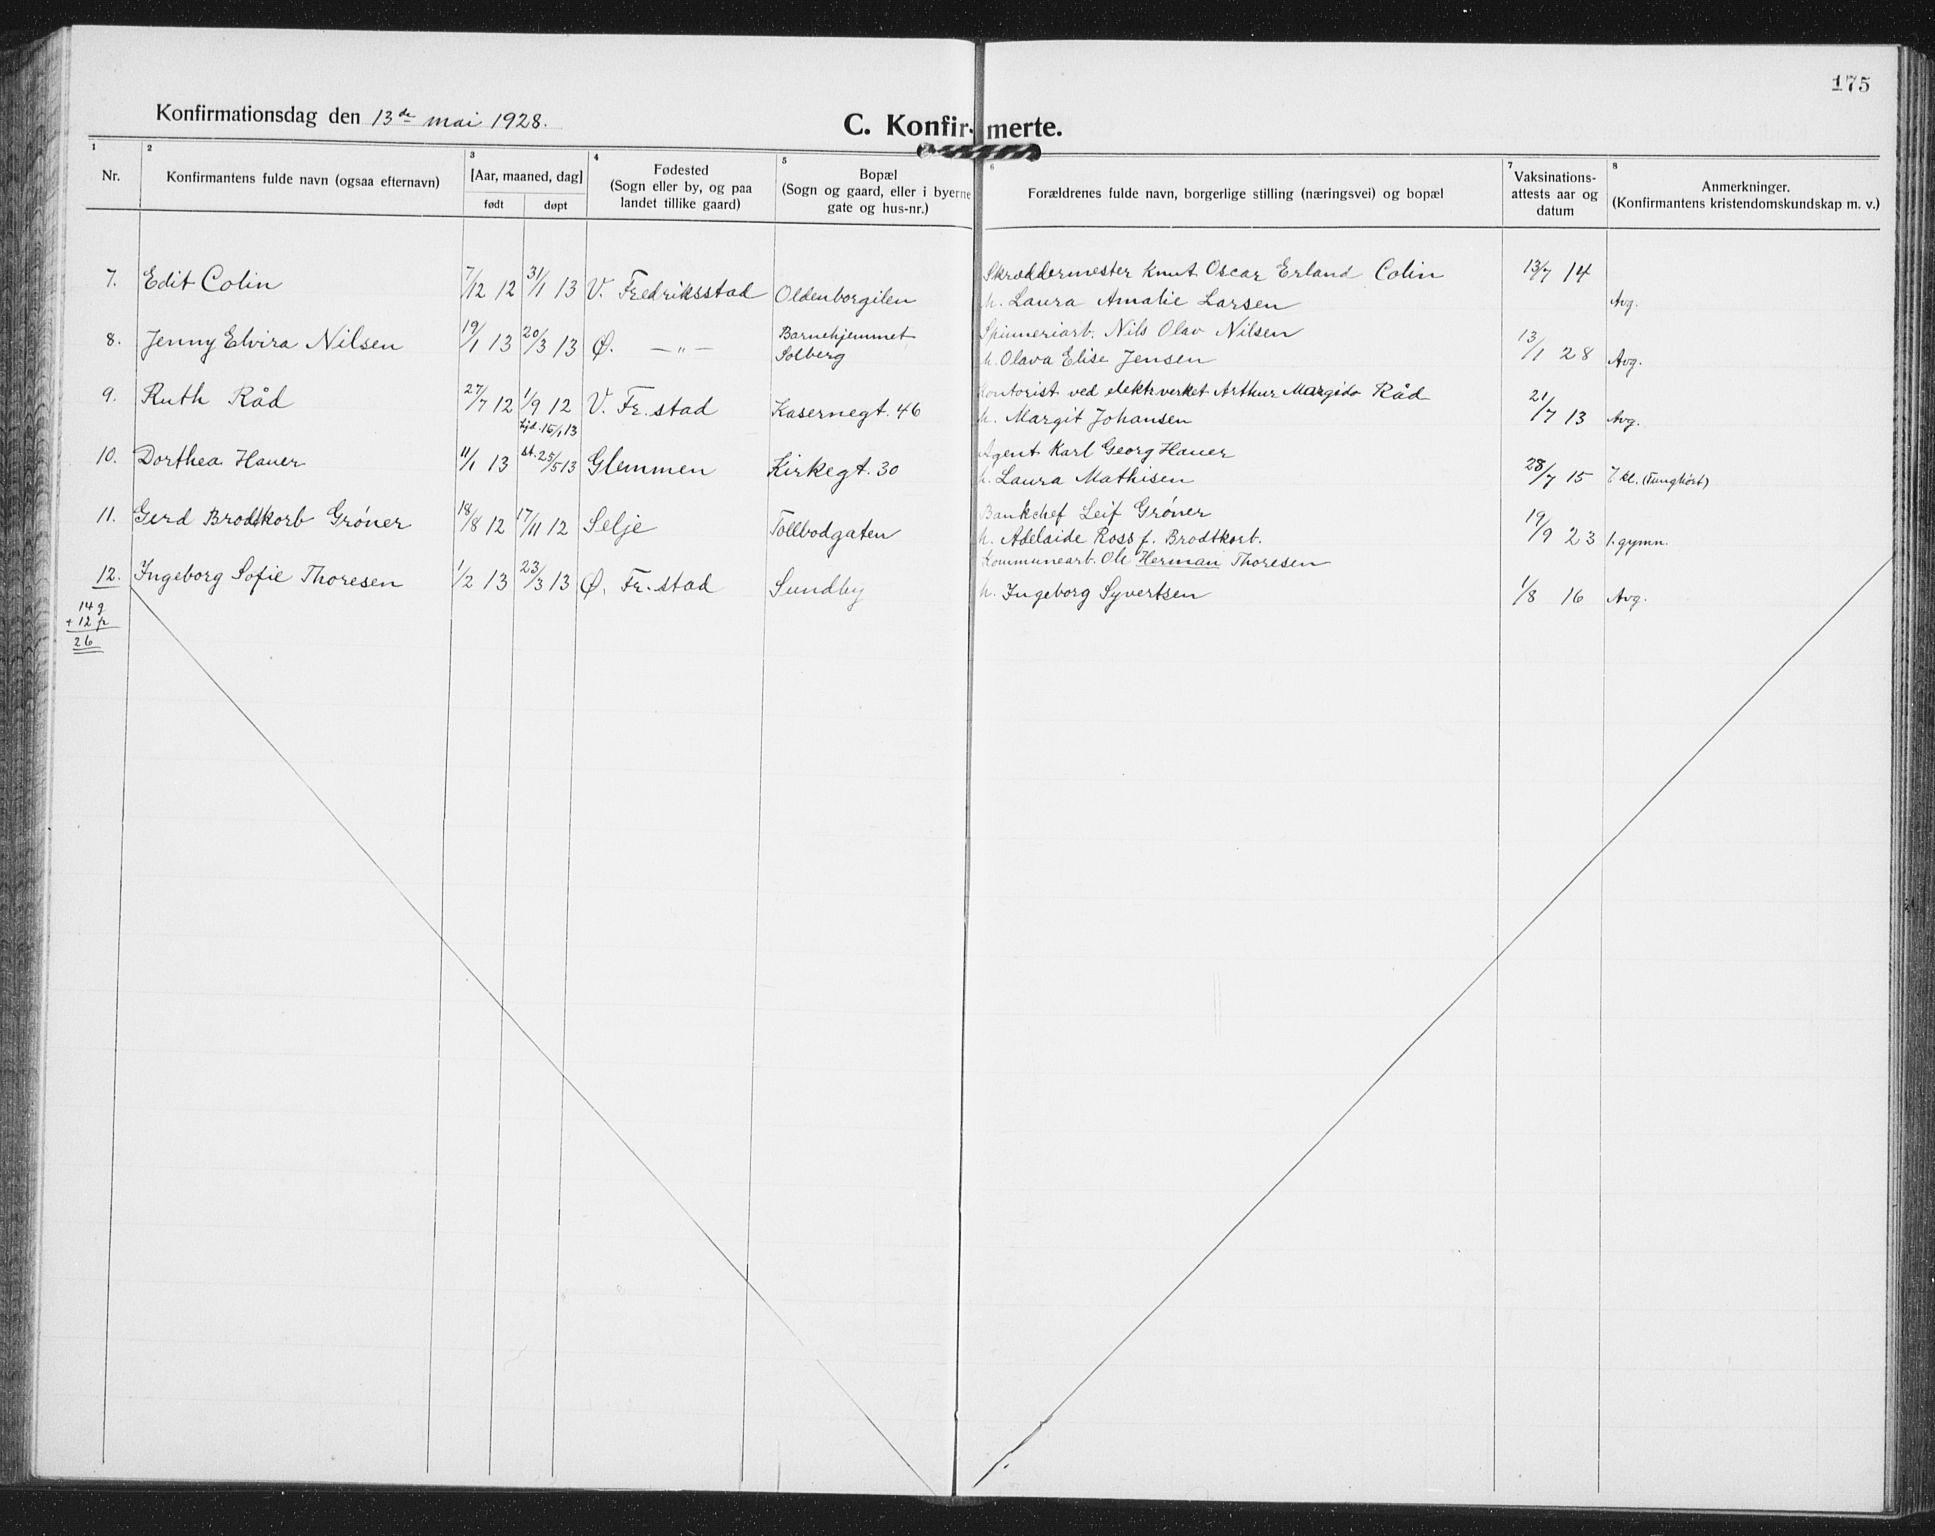 175
Konfirmationsdag den 13de mai 1928.
C. Konfirmerte.
1 2 3 4 5 6 7 8
Nr.
Konfirmantens fulde navn (ogsaa efternavn)
[Aar, maaned, dag]
født døpt
Fødested
(Sogn eller by, og paa
landet tillike gaard)
Bopæl
(Sogn og gaard, eller i byerne
gate og hus-nr.)
Forældrenes fulde navn, borgerlige stilling (næringsvei) og bopæl
Vaksinations-
attests aar og
datum
Anmerkninger.
(Konfirmantens kristendomskundskap m. v.)
7. Edit Colin 7/12 12 31/1 13 V. Fredriksstad Oldenborgilen Skræddermester Knut Oscar Erland Colin 13/7 14
h. Laura Amalie Larsen Avg.
8. Jenny Elvira Nilsen 19/1 13 20/3 13 Ø. —〃— Barnehjemmet Spinneriarb. Nils Olav Nilsen 13/1 28
Solberg h. Olava Elise Jensen Avg.
9. Ruth Råd 27/7 12 1/9 12 V. Fr.stad Kasernegt. 46 Kontorist ved elektr.verket Arthur Margido Råd 21/7 13
15/1 13 h. Margit Johansen Avg.
10. Dorthea Hauer 11/1 13 st. 25/5 13 Glemmen Kirkegt. 30 Agent Karl Georg Hauer 28/7 15
h. Laura Mathisen 7 kl. (Tunghørt)
11. Gerd Brodtkorb Grøner 18/8 12 17/11 12 Selje Tollbodgaten Bankchef Leif Grøner 19/9 23
h. Adelaide Ross f. Brodtkorb. 1. gymn.
12. Ingeborg Sofie Thoresen 1/2 13 23/3 13 Ø. Fr.stad Sundby Kommunearb. Ole Herman Thoresen
h. Ingeborg Syvertsen 1/8 16 Avg.
14 g
+ 12 p
26